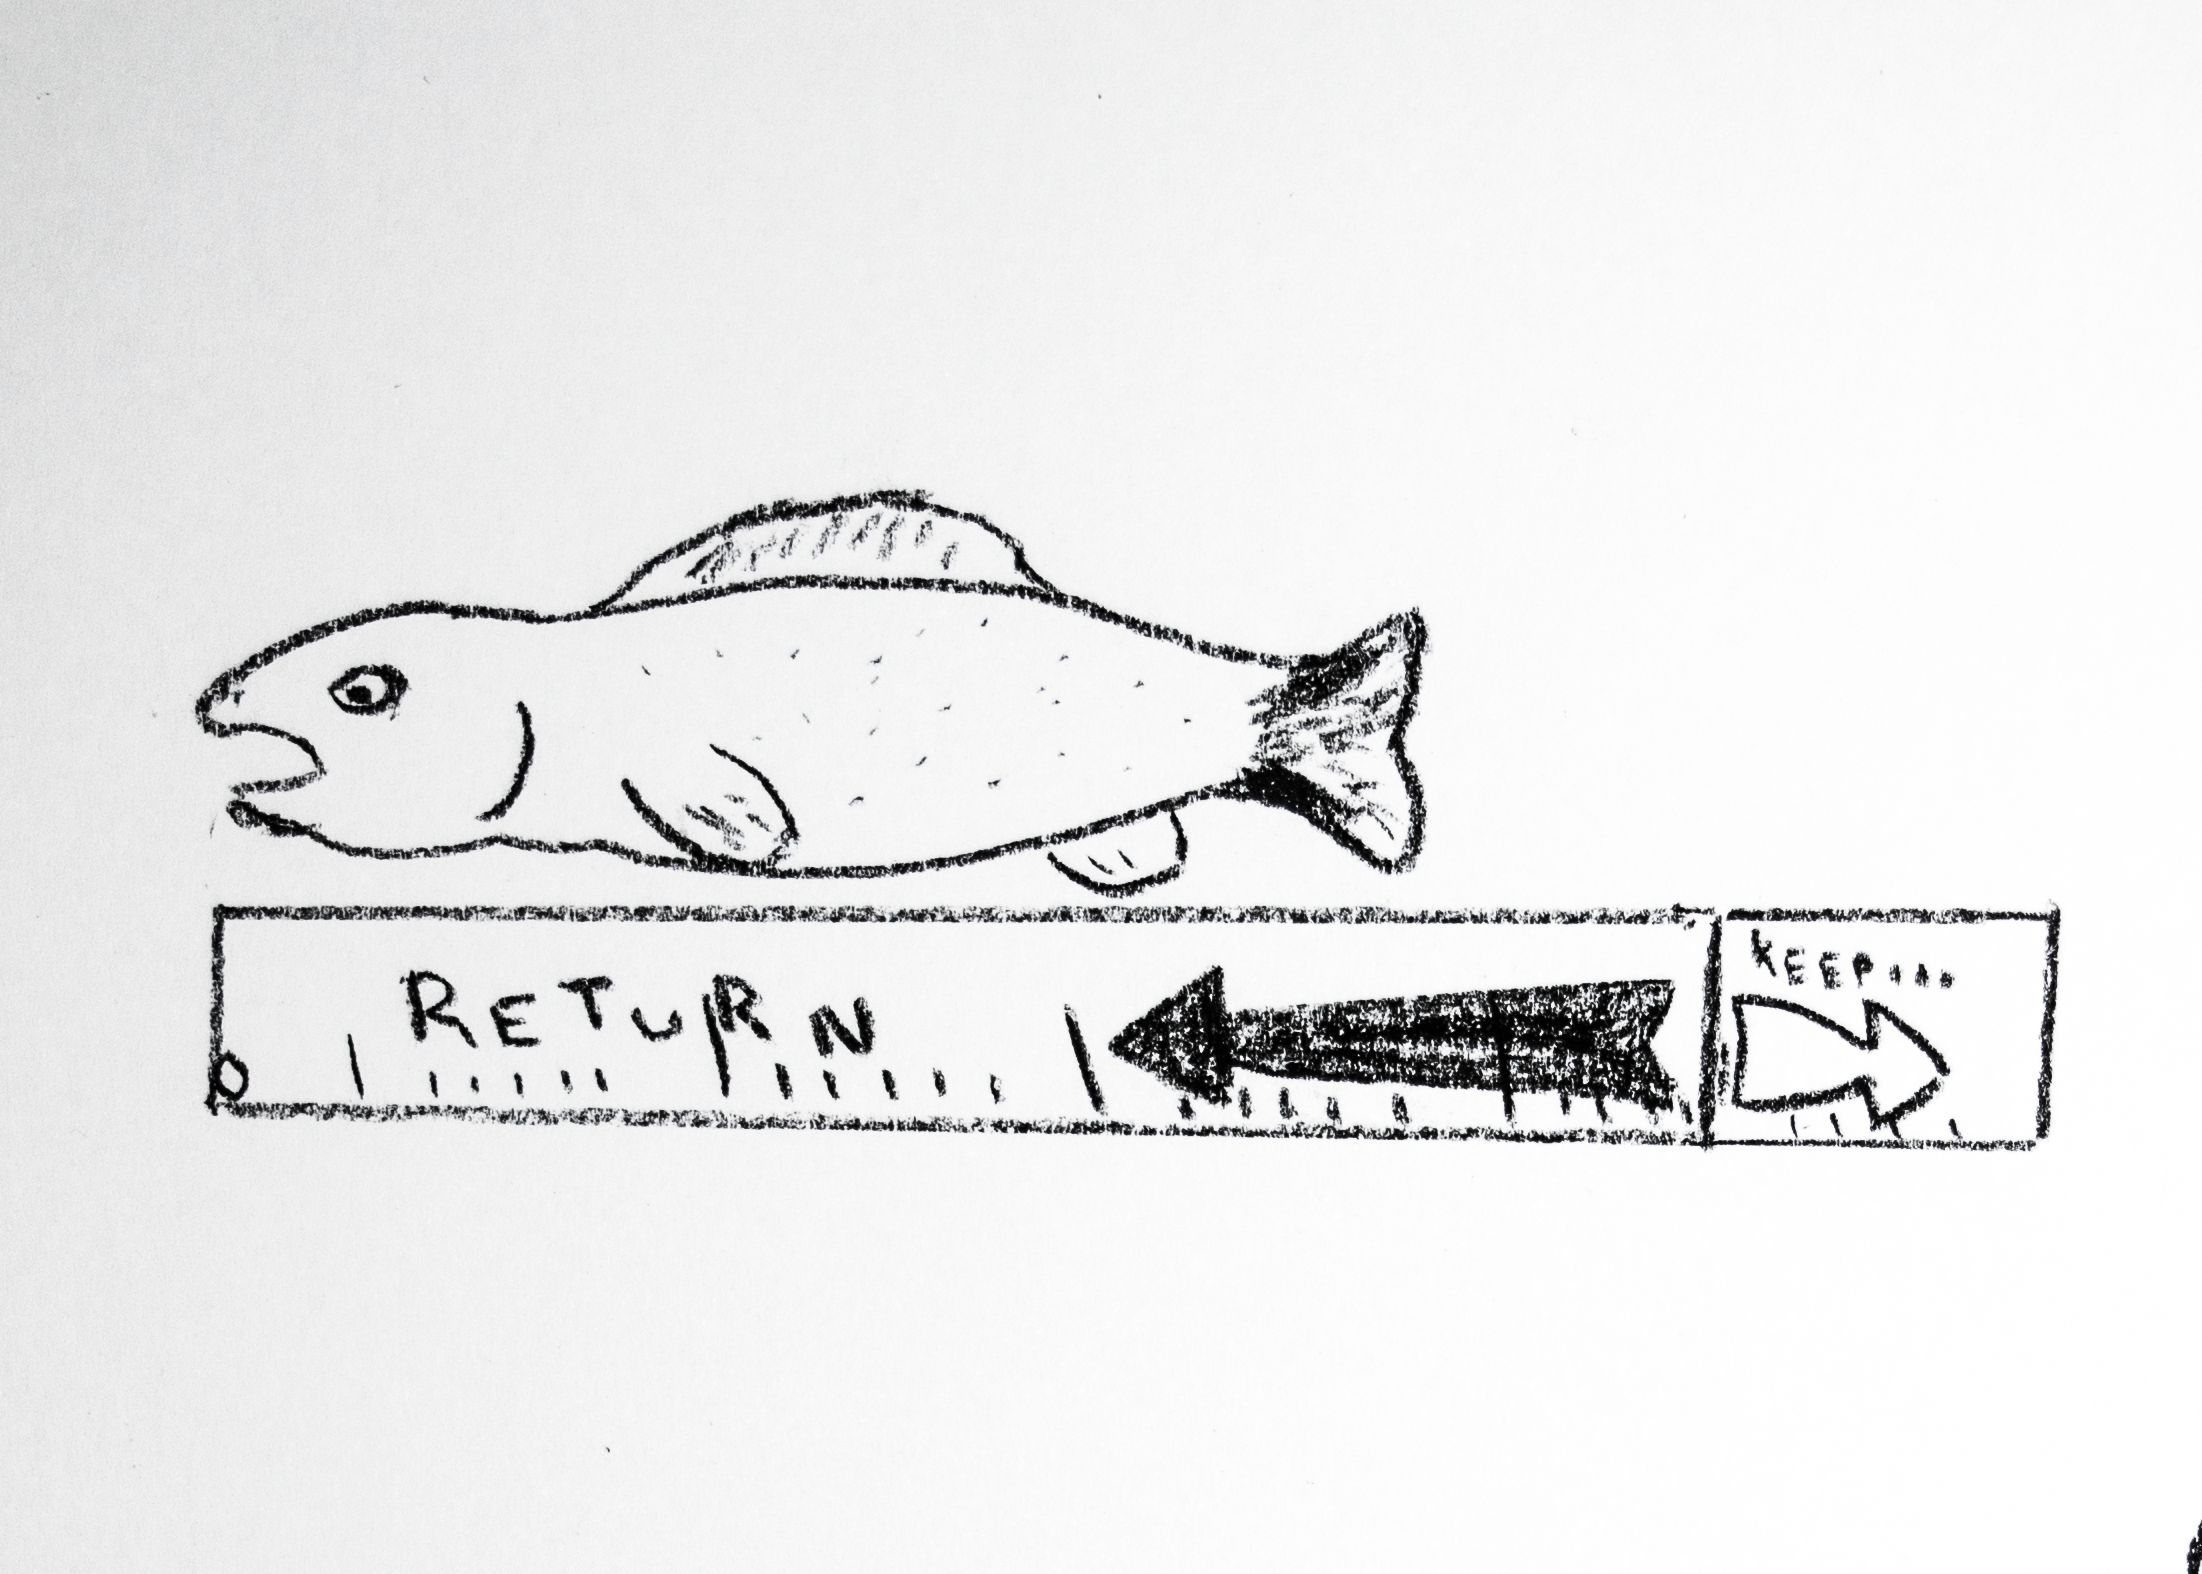 RETURN
KEEP...
0